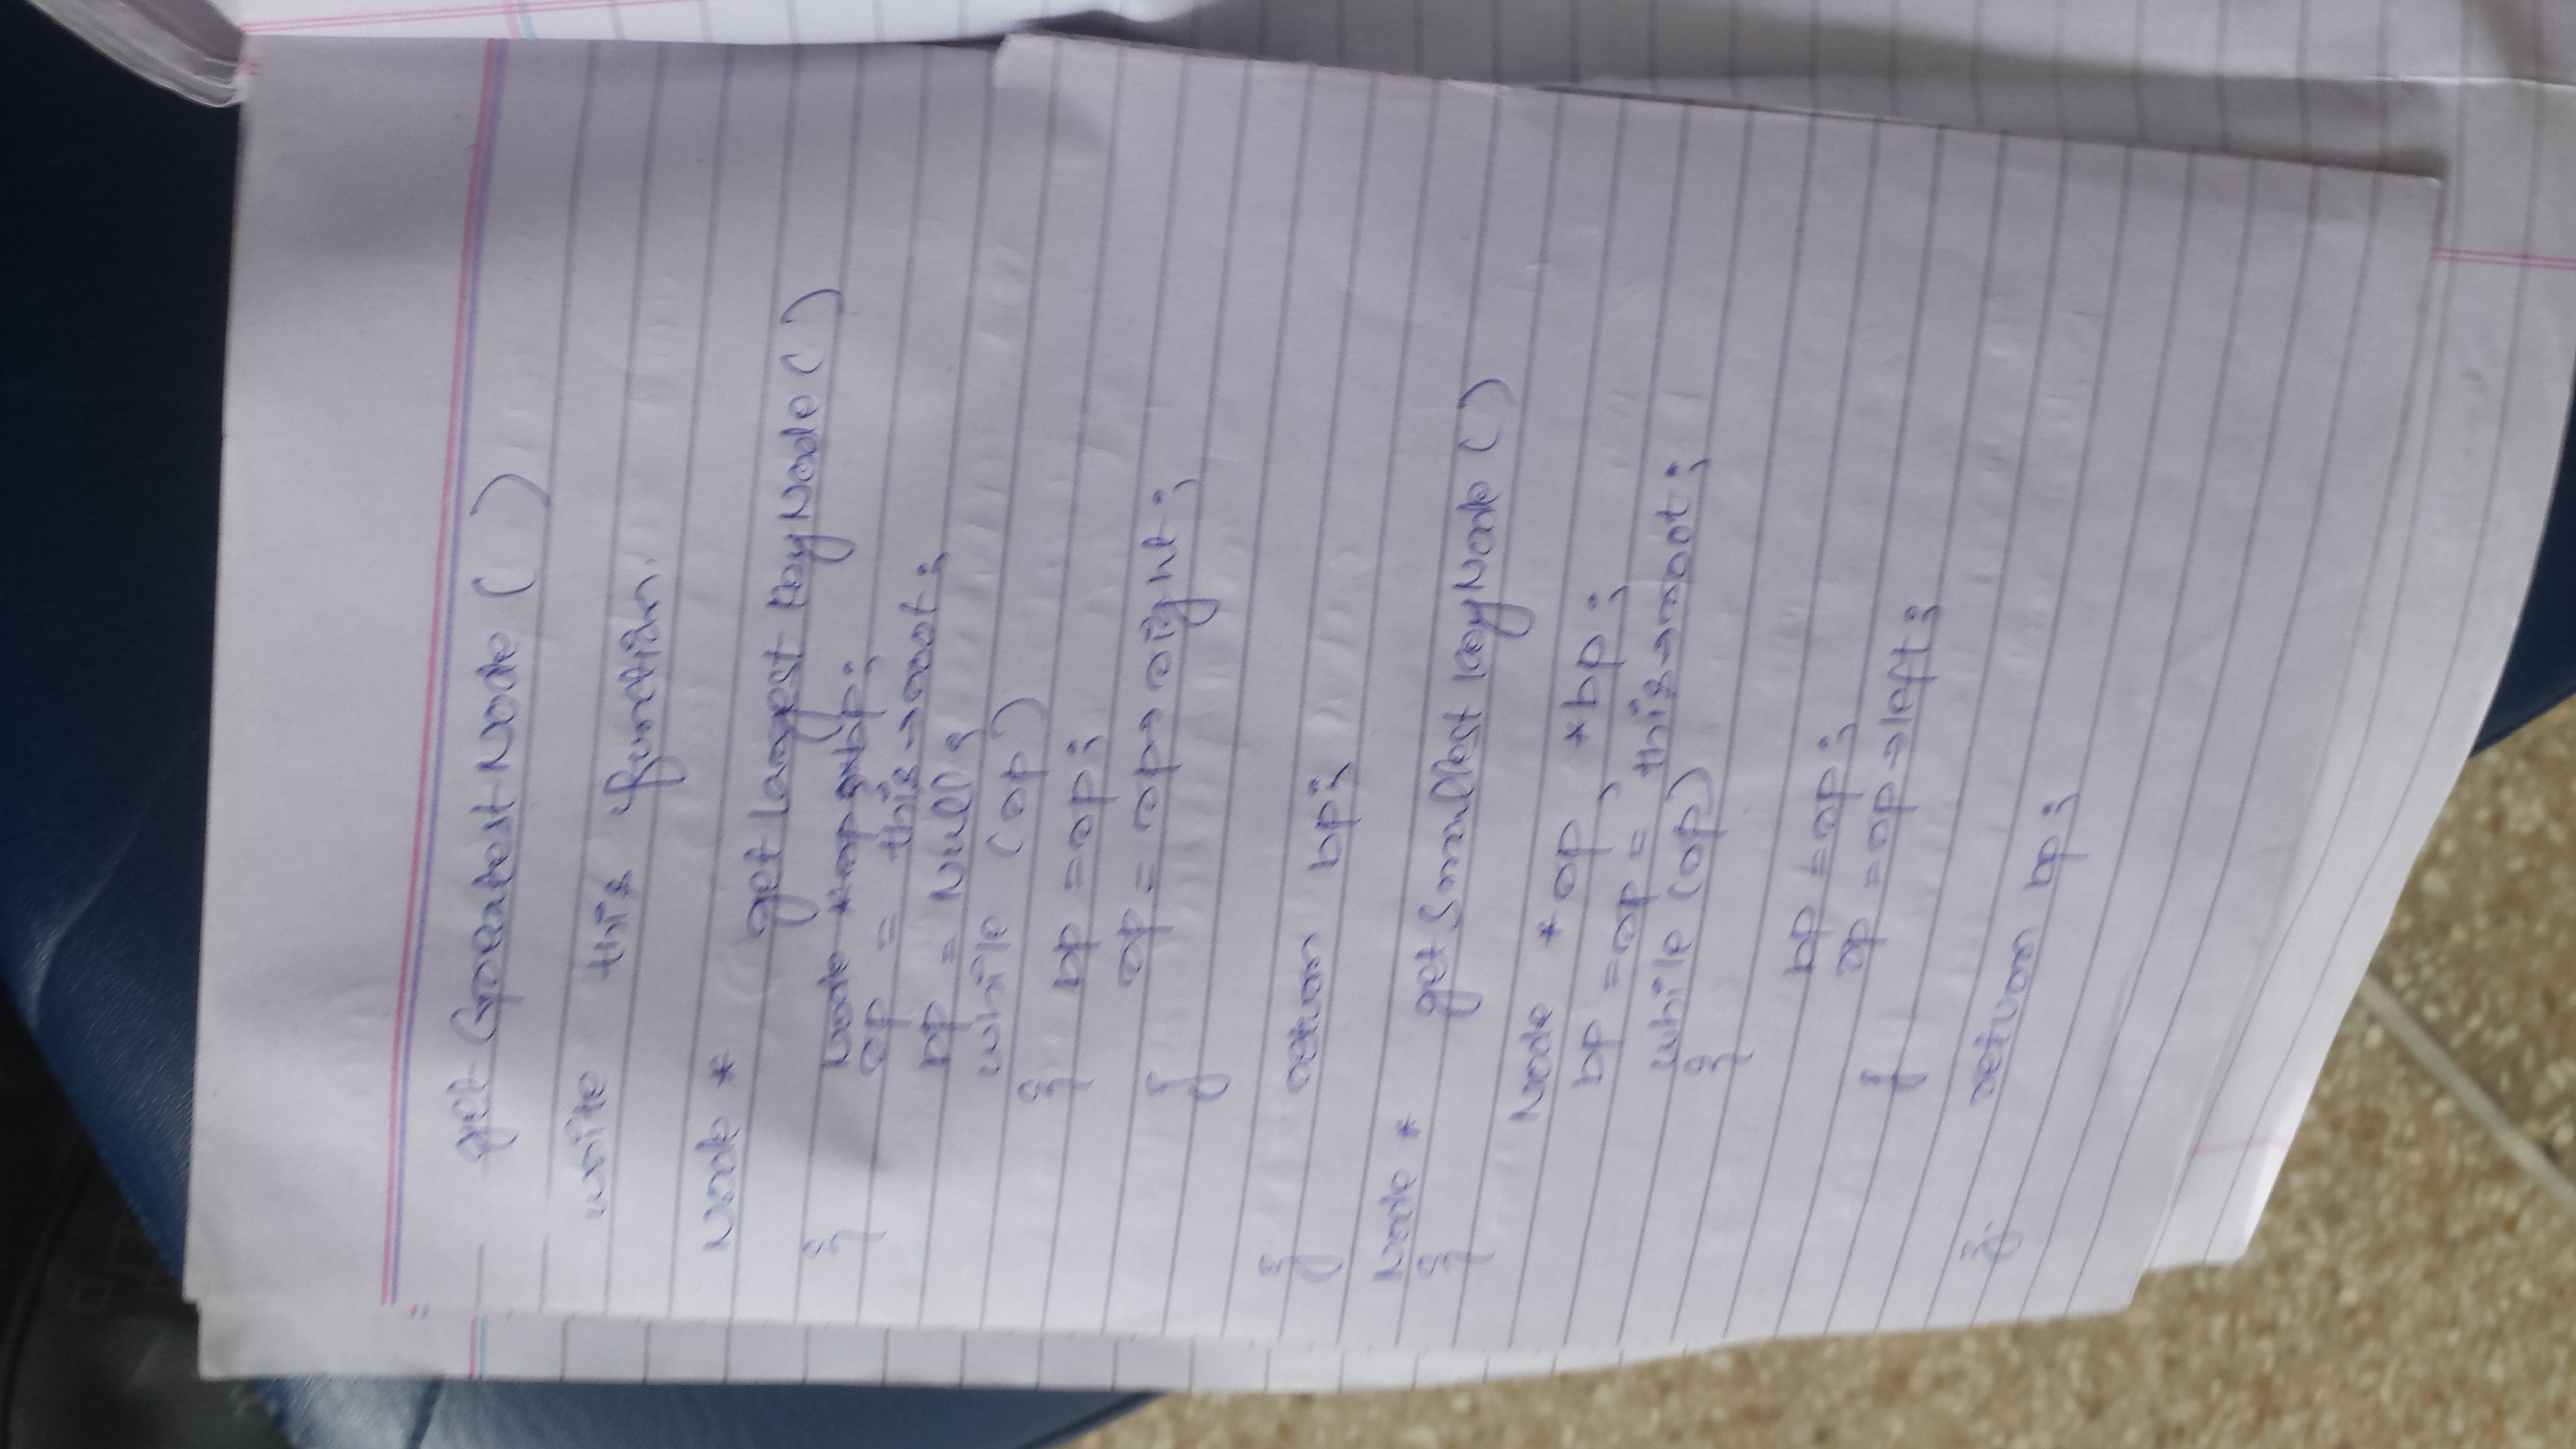 getGreatestNode ( )
write this function.
Node *
getLargest KeyNode ( )
{ Node *rp, *bp;
rp = this→root;
bp = Null;
while (rp)
{ bp = rp;
rp = rp→right;
}
} return bp;
Node * getSmallest KeyNode ( )
{
Node *rp, *bp;
bp = rp = this→root;
while (rp)
{
bp = rp;
rp = rp→left;
}
}. return bp;